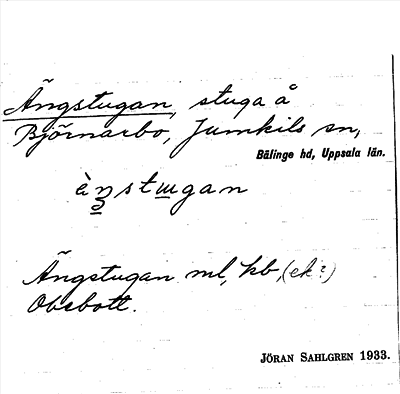 Ängstugan, stuga å
Björnarbo, Jumkils sn,
Bälinge hd, Uppsala län.
èn̲stɯgan
Ängstugan ml, kb, (ek?)
Obebott.
JÖRAN SAHLGREN 1933.